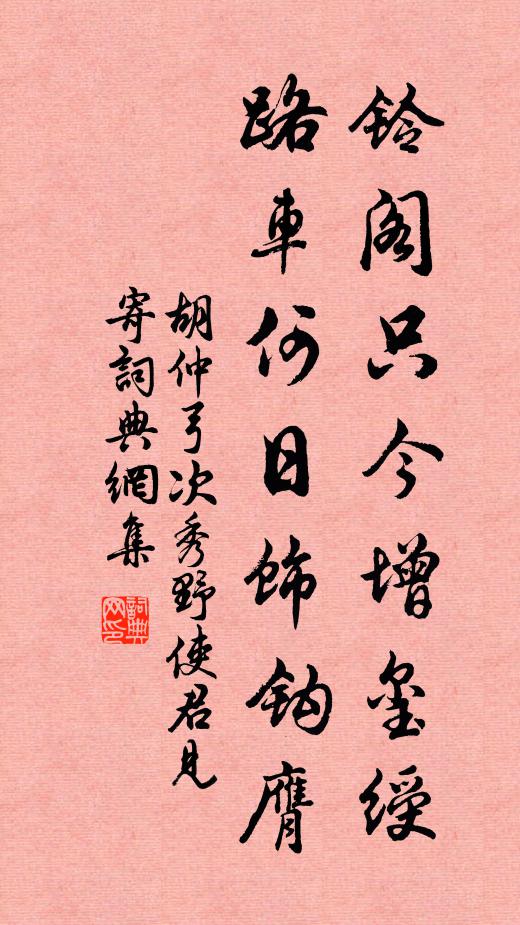 鈴阁只今增玺綬
路車何日飾鈎膺
胡仲弓次秀野使君見
寄詞典網集
詞典網印